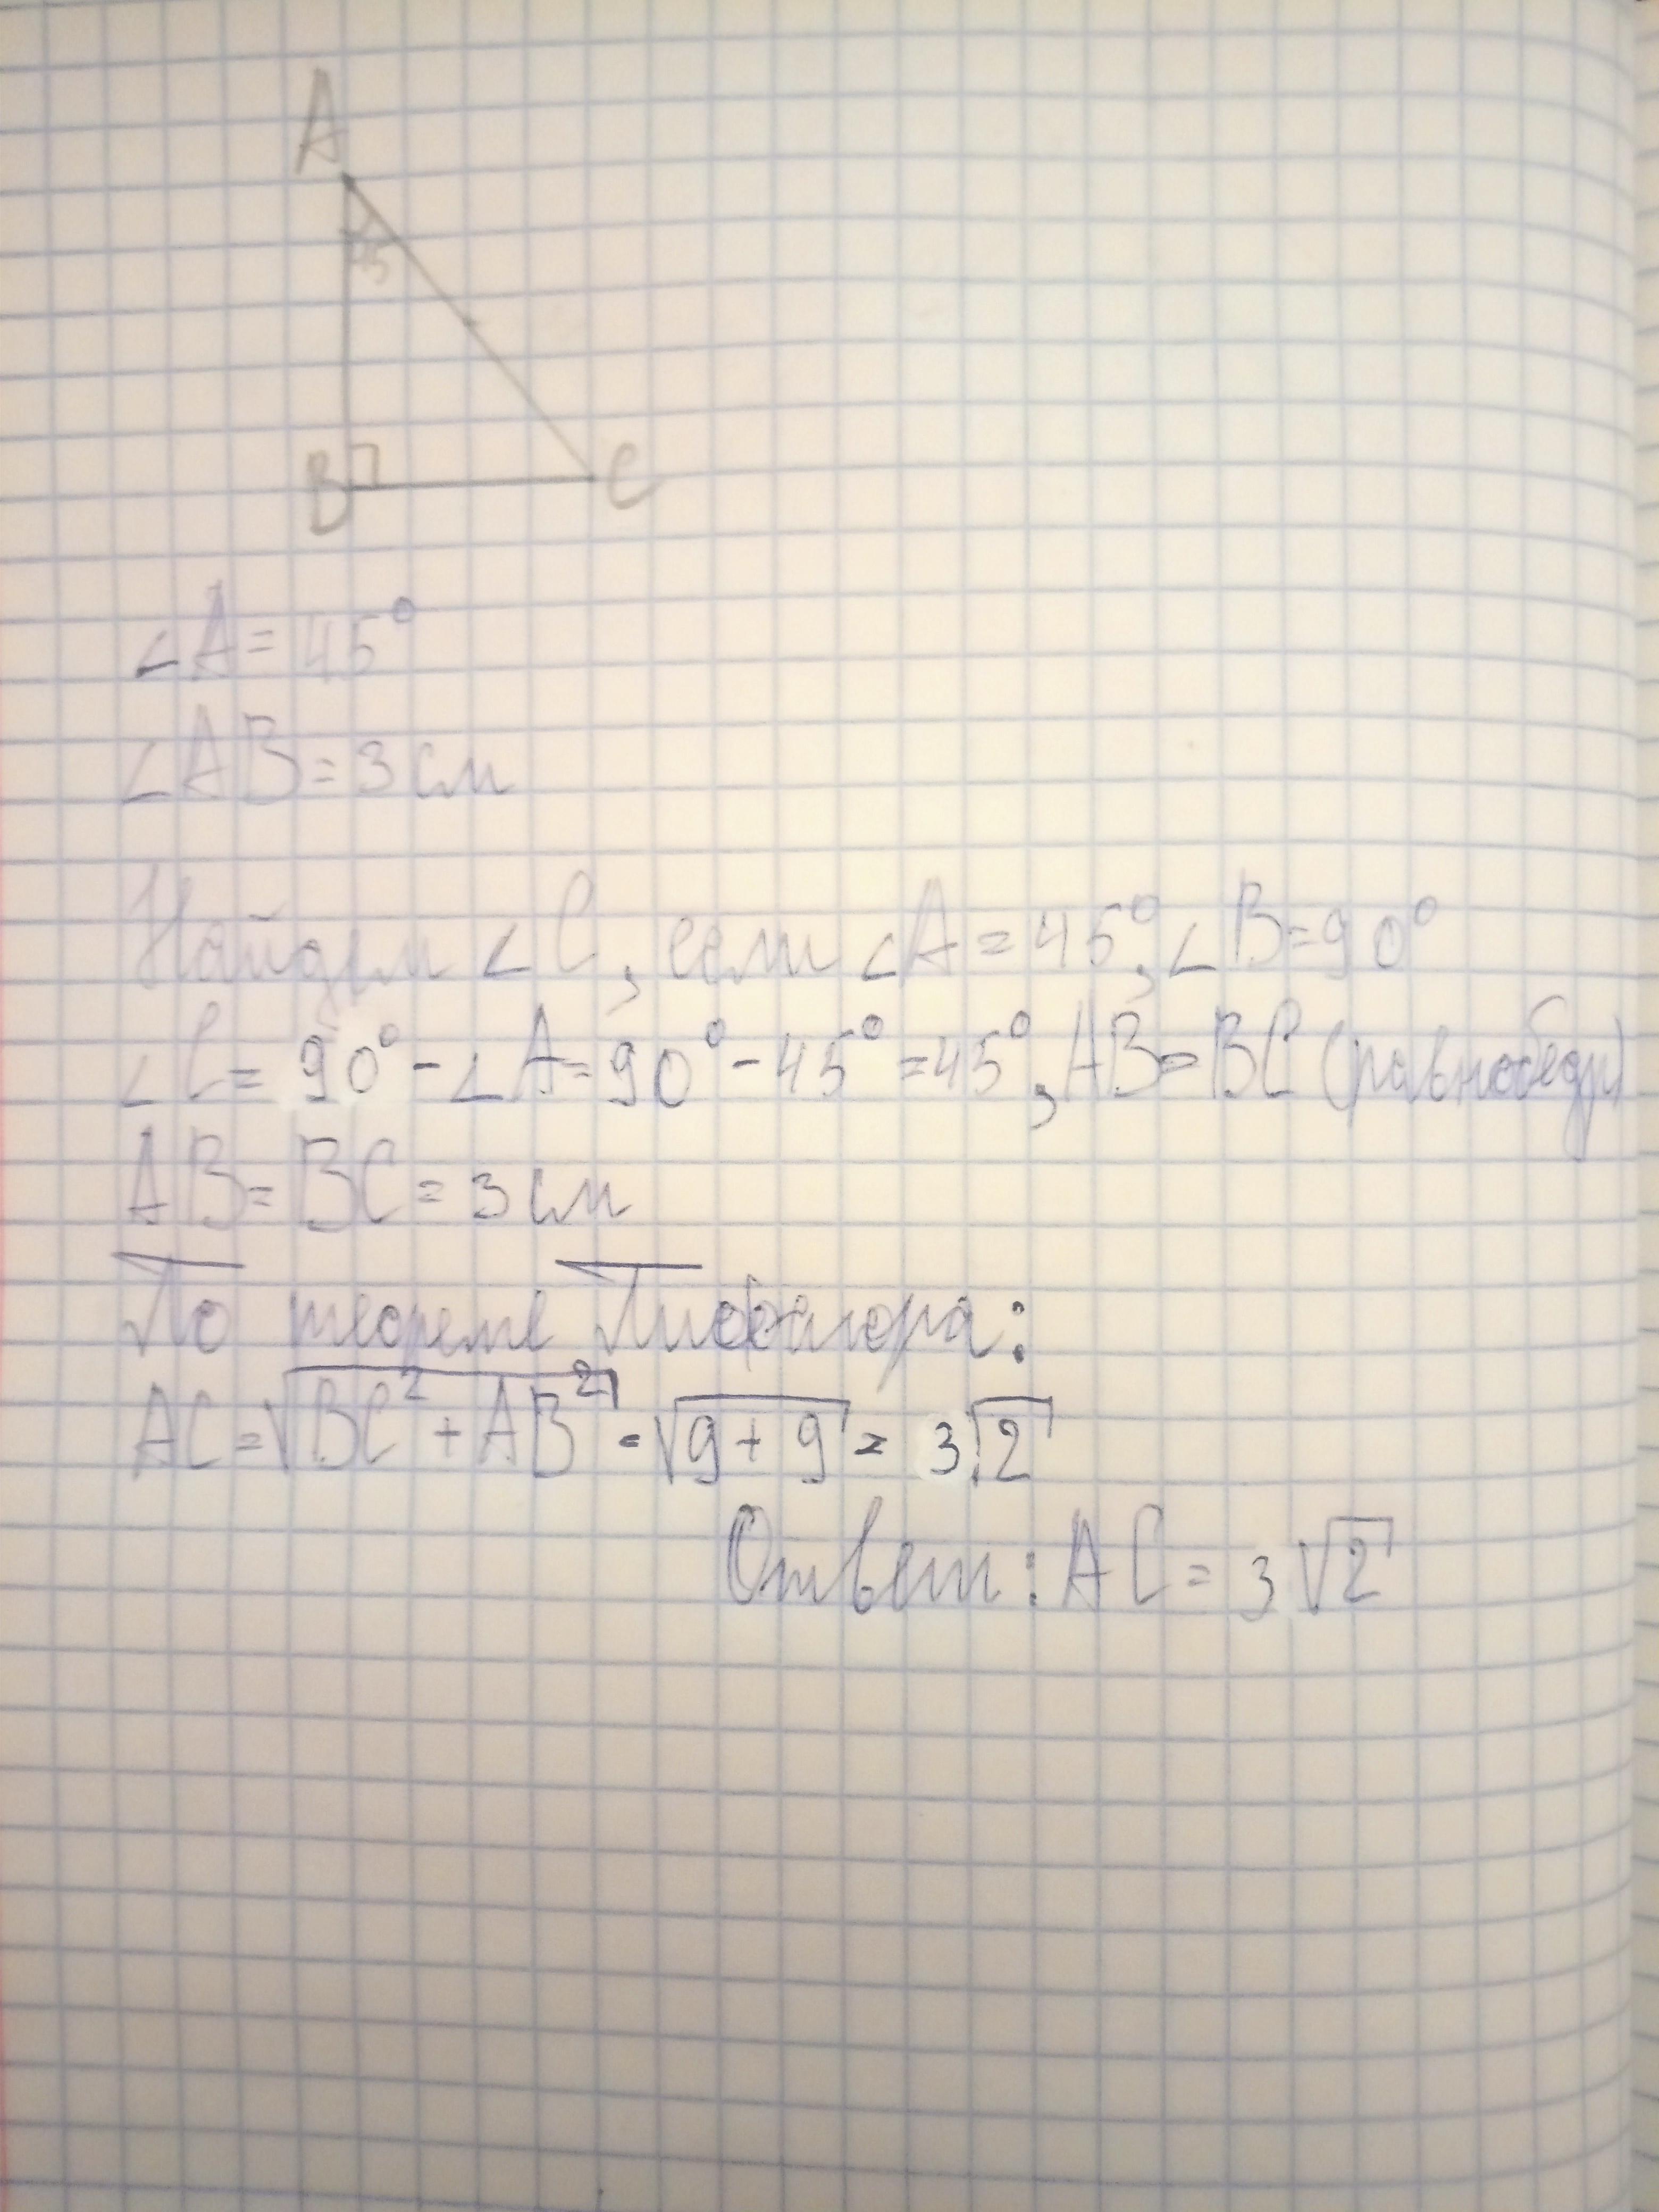 A
45
B
C
∠A = 45°
∠AB = 3 см
Найдем ∠C, если ∠A = 45°, ∠B = 90°
∠C = 90° - ∠A = 90° - 45° = 45°, AB = BC (равнобедр)
AB = BC = 3 см
По теореме Пифагора:
AC = √BC² + AB² = √9 + 9 = 3√2
Ответ: AC = 3√2